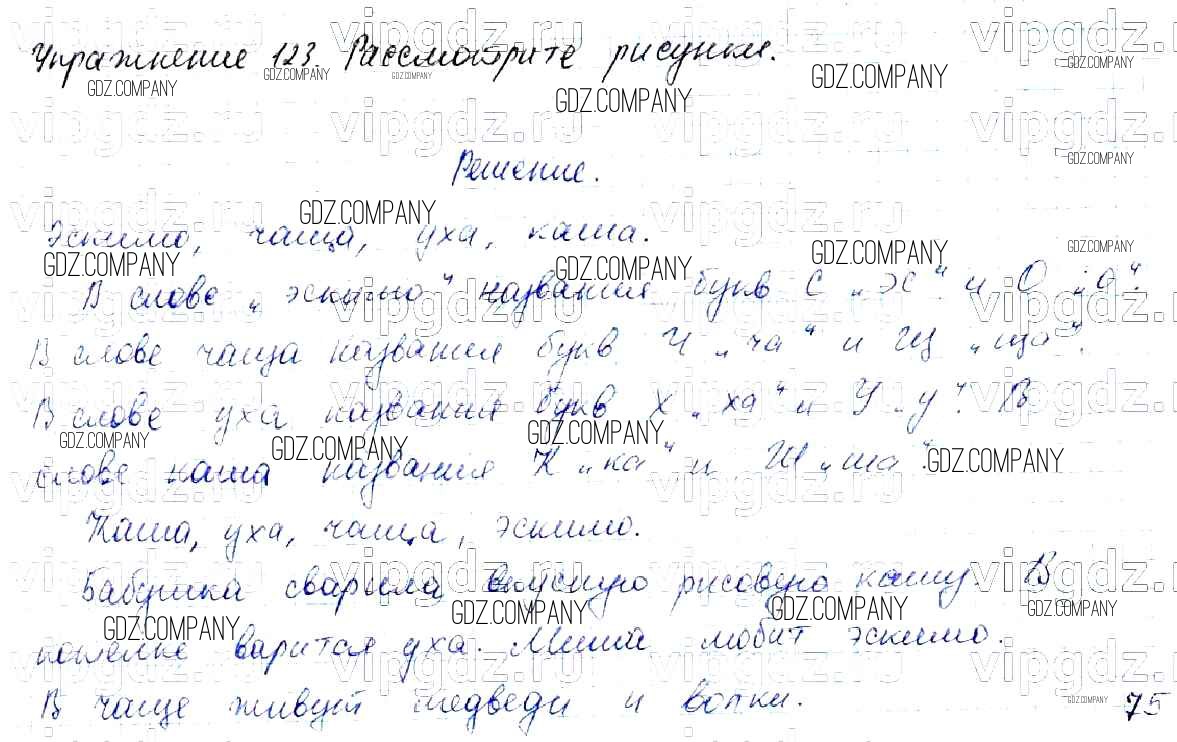 Упражнение 123. Рассмотрите рисунки.
Решение.
Эскимо, чаща, уха, каша.
В слове „эскимо“ названия букв С „эс“ и О „о“.
В слове чаща названия букв Ч „ча“ и Щ „ща“.
В слове уха названия букв Х „ха“ и У „у“. В
слове каша названия К „ка“ и Ш „ша“.
Каша, уха, чаща, эскимо.
Бабушка сварила вкусную рисовую кашу. В
котелке варится уха. Миша любит эскимо.
В чаще живут медведи и волки.
75
vipgdz.ru
GDZ.COMPANY